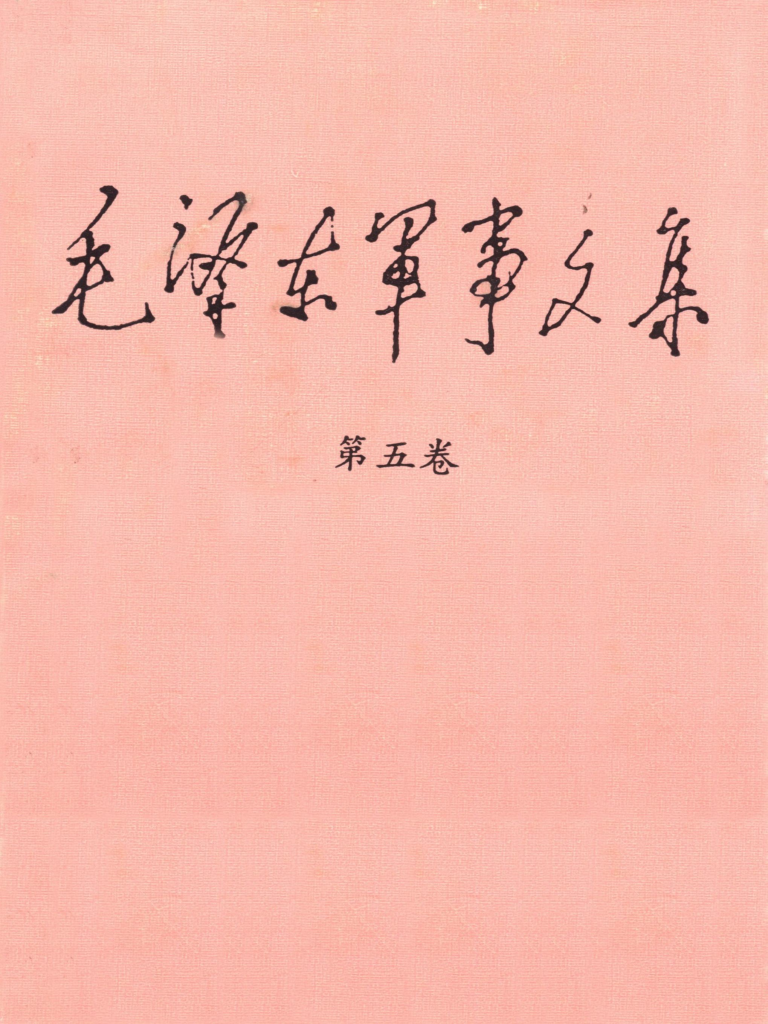 毛泽东軍事文集
第五卷